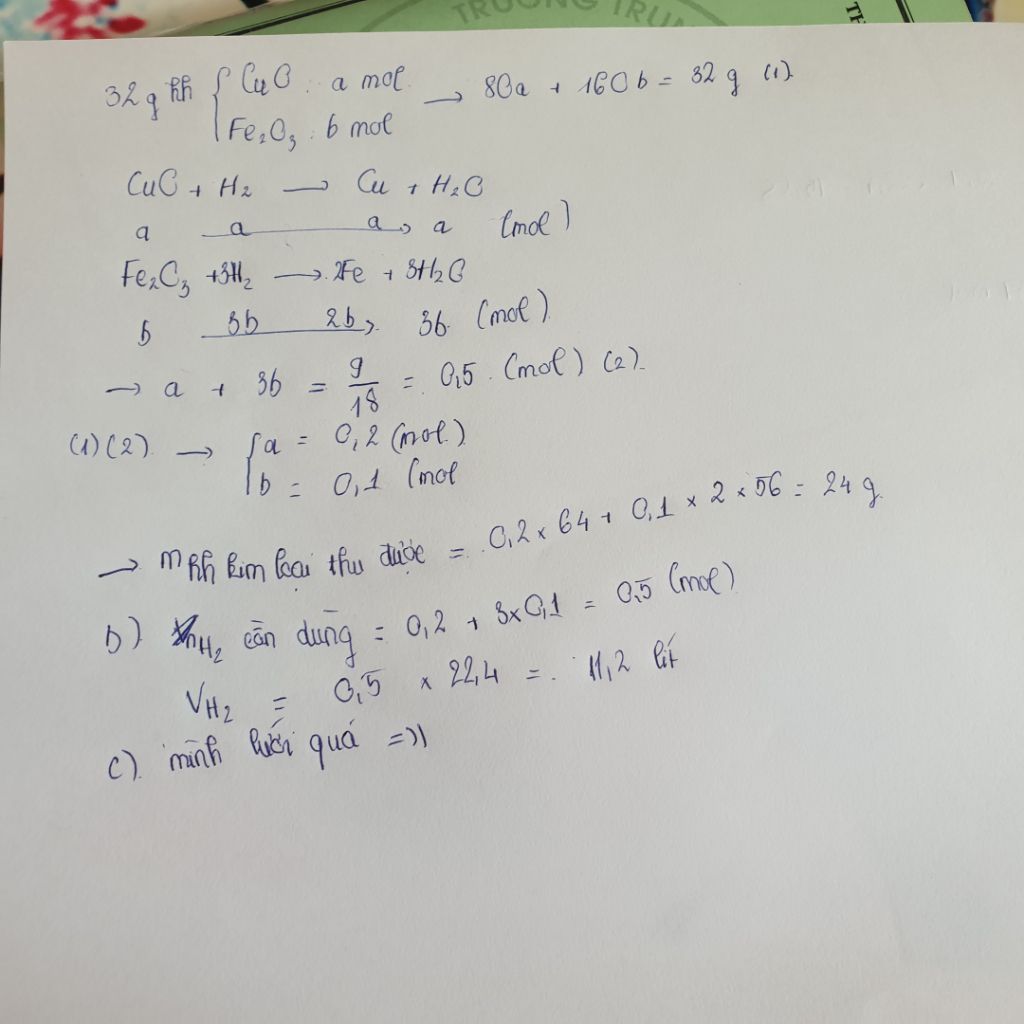 TRƯỜNG TRUN
TH
32g hh { CuO : a mol → 80a + 160b = 32 g (1).
Fe₂O₃ : b mol
CuO + H₂ → Cu + H₂O
a a a → a (mol)
Fe₂O₃ + 3H₂ → 2Fe + 3H₂O
b 3b 2b → 3b (mol)
→ a + 3b = 9/18 = 0,5 (mol) (2).
(1)(2) → { a = 0,2 (mol)
b = 0,1 (mol
→ m hh kim loại thu được = 0,2 × 64 + 0,1 × 2 × 56 = 24 g
b) nH₂ cần dùng = 0,2 + 3×0,1 = 0,5 (mol)
VH₂ = 0,5 × 22,4 = 11,2 lít
c) mình lười quá =))